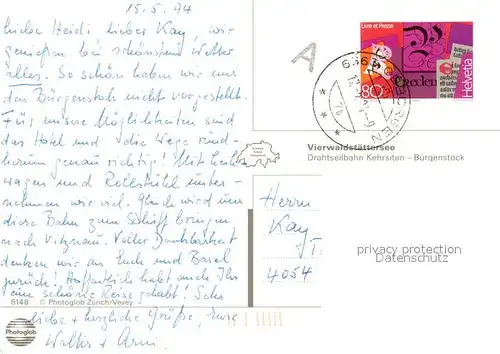 15.5.94
Liebe Heidi lieber Kay, wir
genießen bei schönstem Wetter
alles. So schön haben wir uns
den Bürgenstock nicht vorgestellt.
Für unsere Möglichkeiten sind
das Hotel und die Wege rund-
herum genau richtig! Mit
wagen und Rollstühl unter-
nehmen wir viel. Gleich wird uns
diese Bahn zum Schiff bringen
nach Vitznau. Voller Dankbarkeit
denken wir an Euch und Basel
zurück! Hoffentlich habt auch Ihr
eine schöne Reise gehabt! Sehr
liebe + herzliche Grüße, Eure
Walter +
6148 © Photoglob Zürich/Vevey
Photoglob
A
Livre et Presse
80
Helvetia
Vierwaldstättersee
Drahtseilbahn Kehrsiten – Bürgenstock
Herrn
Kay
4054
privacy protection
Datenschutz